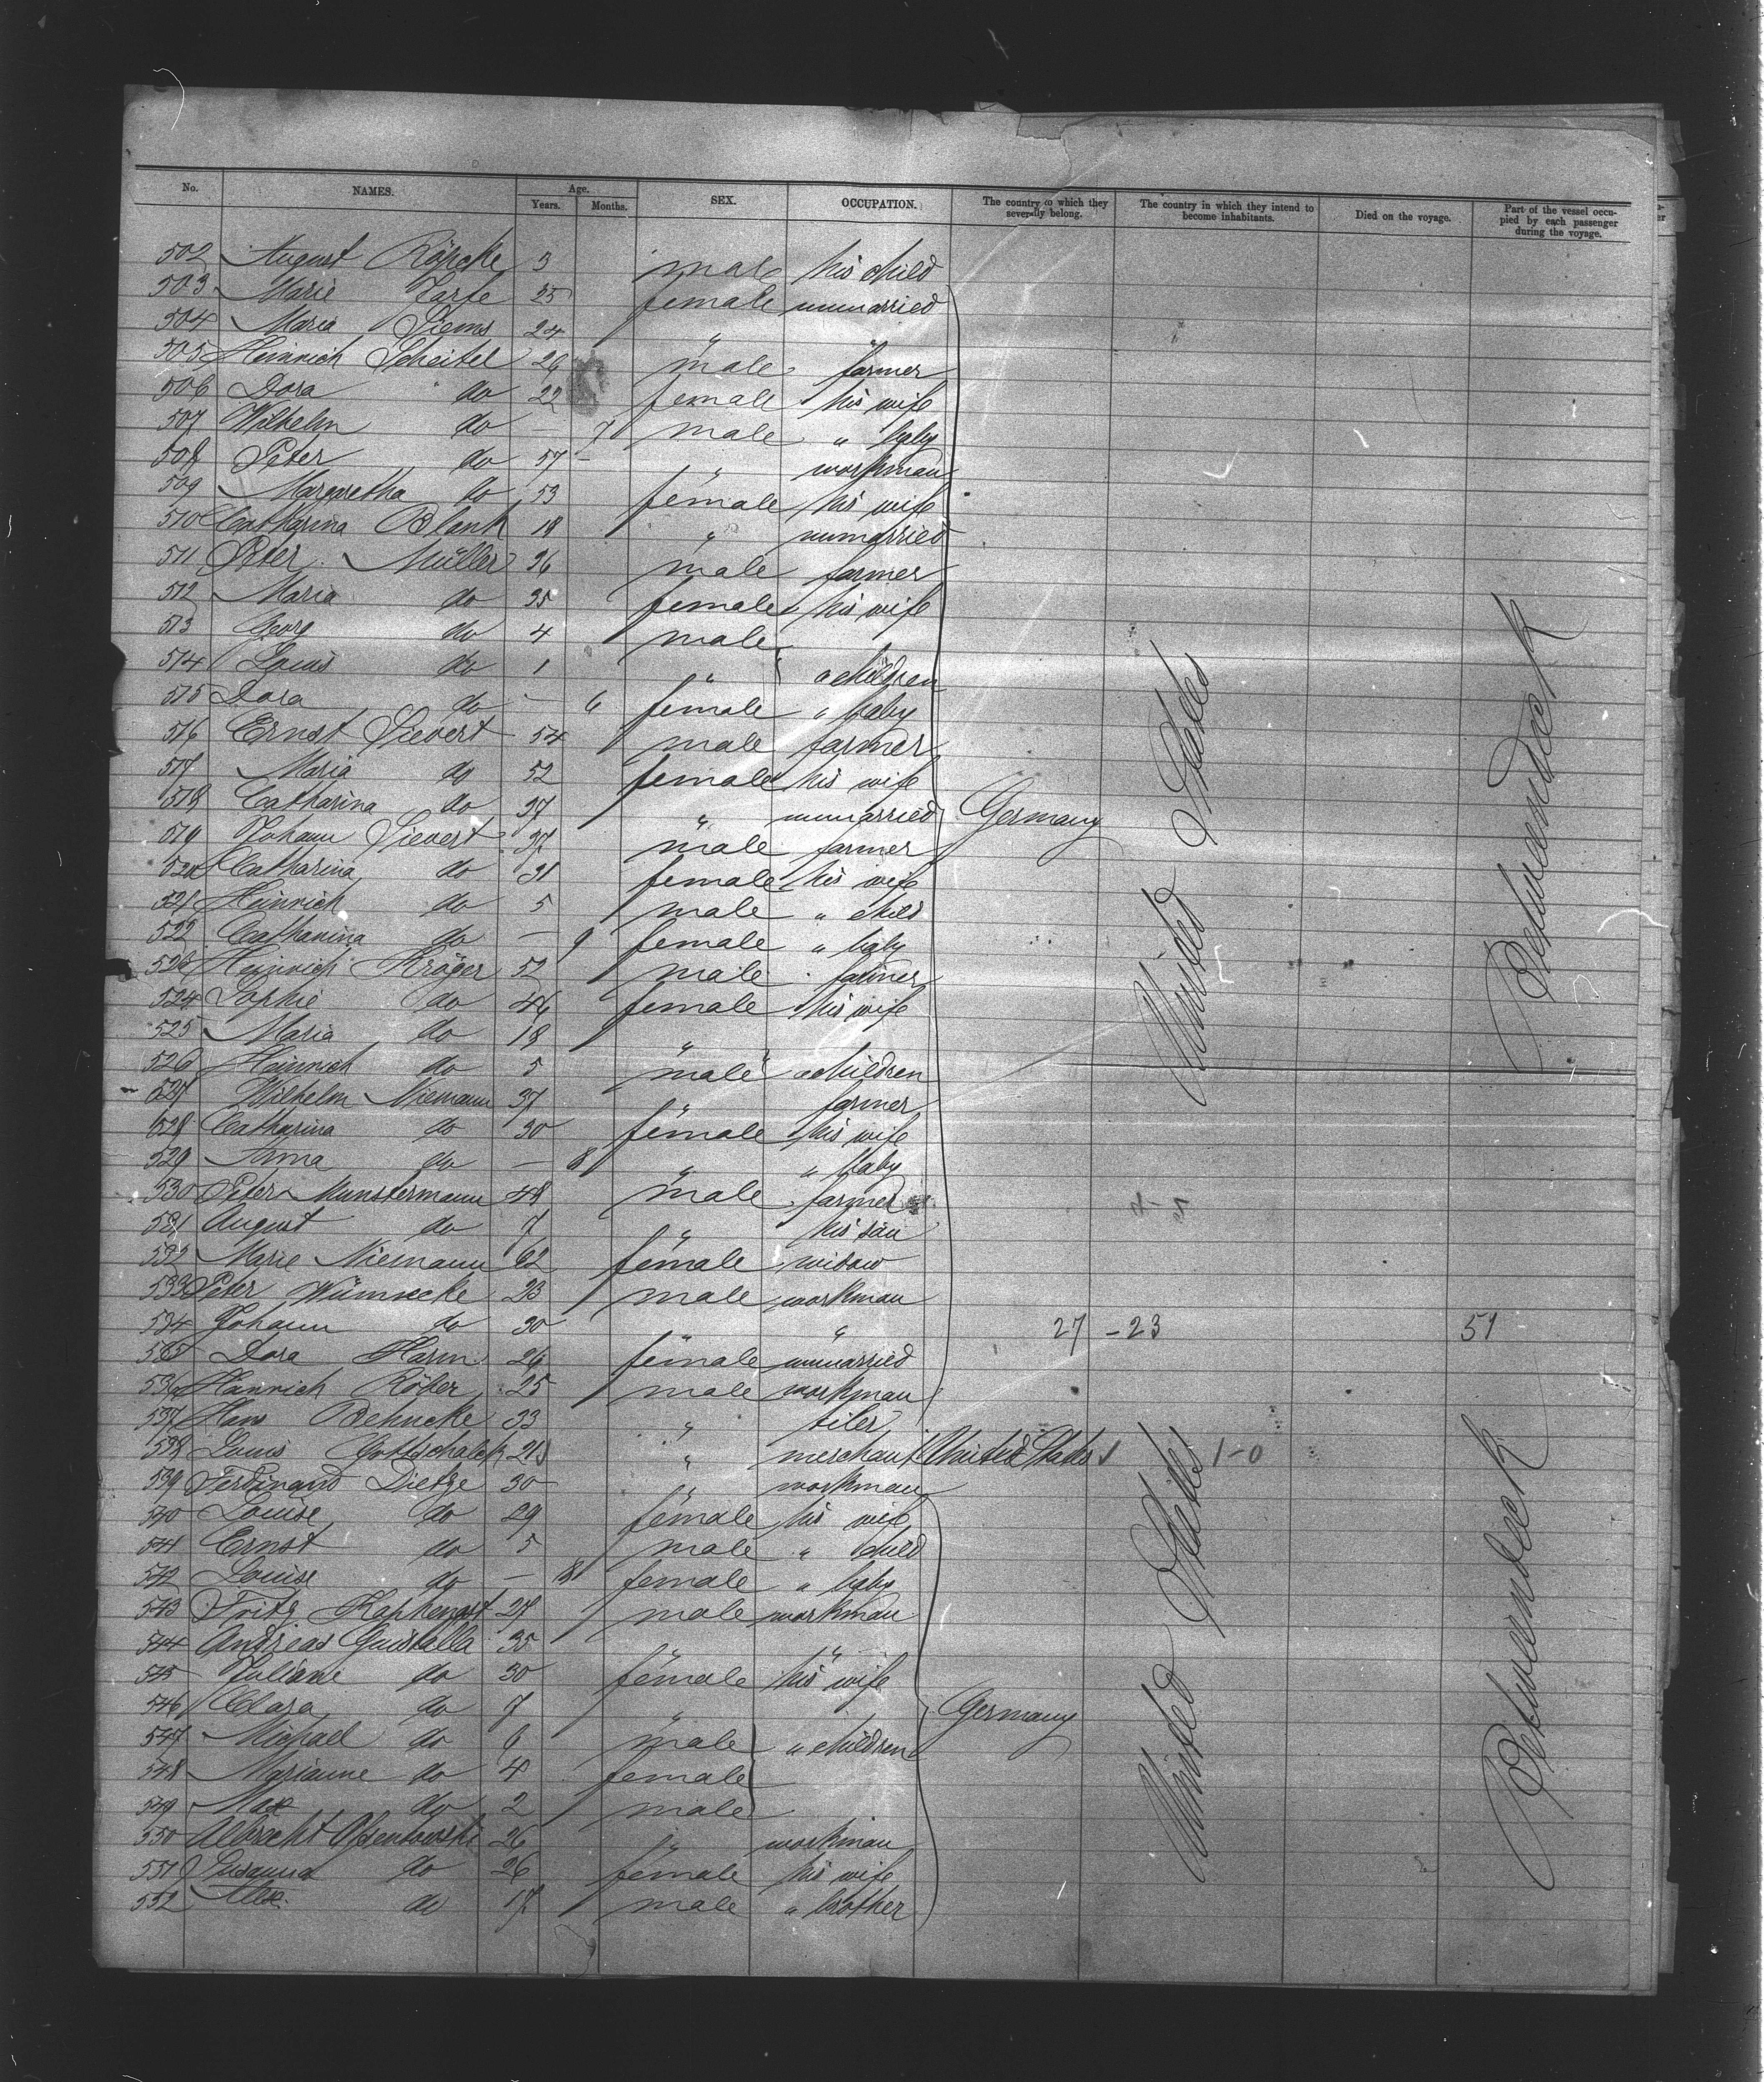 No. NAMES. Age. Years. Months. SEX. OCCUPATION. The country to which they severally belong. The country in which they intend to become inhabitants. Died on the voyage. Part of the vessel occupied by each passenger during the voyage.
502 August Röpcke 3 male his child
503 Marie 25 female unmarried
504 Maria Siems 24 " "
505 Heinrich Scheitel 26 male farmer
506 Dora do 22 female his wife
507 Wilhelm do — 7 male " baby
508 Peter do 57 — " workman
509 Margaretha do 53 female his wife
510 Catharina Blank 18 " unmarried
511 Peter Müller 36 male farmer
512 Maria do 35 female his wife
513 Georg do 4 male
514 Louis do 1 " " children
515 Dora do — 6 female " baby
516 Ernst Sievert 54 male farmer
517 Maria do 52 female his wife
518 Catharina do 37 " unmarried Germany United States Betweendeck
519 Johann Sievert 37 male farmer
520 Catharina do 31 female his wife
521 Heinrich do 5 male " child
522 Catharina do — 9 female " baby
523 Heinrich Kröger 52 male farmer
524 Sophie do 46 female his wife
525 Maria do 18 "
526 Heinrich do 5 male " children
527 Wilhelm Niemann 37 " farmer
528 Catharina do 30 female his wife
529 Anna do — 8 " " baby
530 Peter Munstermann 48 male farmer
531 August do 7 " his son
532 Marie Niemann 62 female widow
533 Peter Wümecke 23 male workman
534 Johann do 30 " " 27 - 23 51
535 Dora Harm 26 female unmarried
536 Heinrich Röker 25 male workman
537 Hans Behncke 33 " tiler
538 Louis Gottschalck 21 " merchant United States 1-0
539 Ferdinand Dietze 30 " workman
540 Louise do 29 female his wife
541 Ernst do 5 male " child
542 Louise do — 8 female " baby
543 Fritz Kaphengst 27 male workman
544 Andreas 35 " "
545 Juliane do 30 female his wife
546 Clara do 7 " Germany United States Betweendeck
547 Michael do 6 male " children
548 Marianne do 4 female
549 Max do 2 male
550 Albrecht 26 " workman
551 Susanna do 26 female his wife
552 Alex. do 17 male " brother